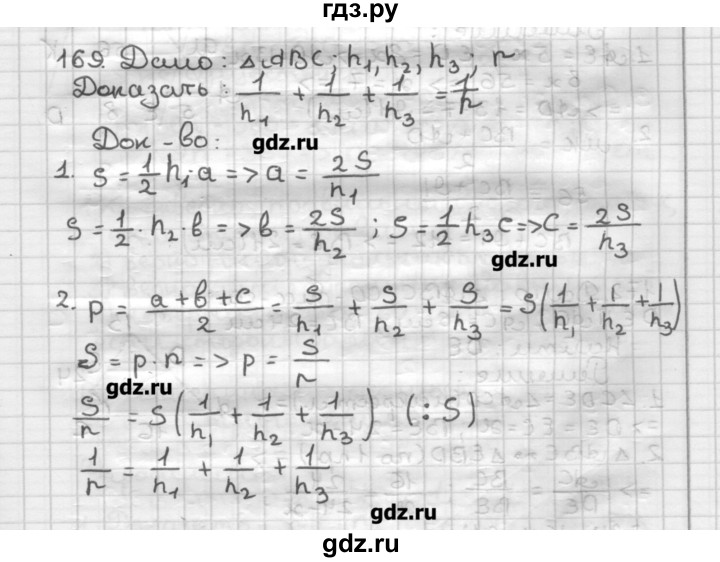 гдз.ру
169. Дано: △ABC; h₁, h₂, h₃; r
Доказать: 1/h₁ + 1/h₂ + 1/h₃ = 1/r
Док-во:
gdz.ru
1. S = 1/2 h₁·a => a = 2S/h₁
S = 1/2·h₂·b => b = 2S/h₂; S = 1/2 h₃c => c = 2S/h₃
gdz.ru
2. p = (a+b+c)/2 = S/h₁ + S/h₂ + S/h₃ = S(1/h₁ + 1/h₂ + 1/h₃)
S = p·r => p = S/r
gdz.ru
S/r = S(1/h₁ + 1/h₂ + 1/h₃) (:S)
1/r = 1/h₁ + 1/h₂ + 1/h₃
gdz.ru
gdz.ru